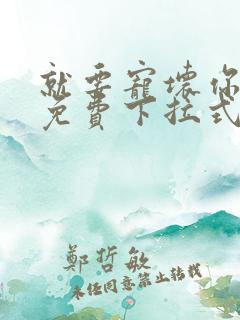 就要寵壞你
免費下拉式
鄭哲敏
未经同意禁止转载